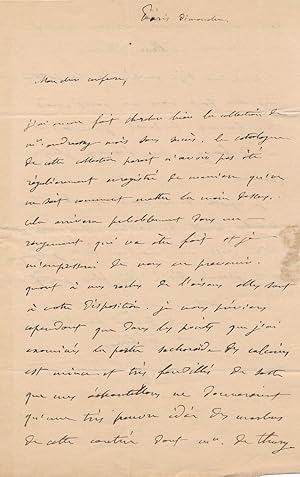 Paris Dimanche,
Mon cher confrère,
j'ai encore fait chercher hier la collection de
mr. andreossy mais sans succès. le catalogue
de cette collection parait n'avoir pas été
régulierement enregistré de maniere qu'on
ne sait comment mettre la main dessus.
cela arrivera probablement dans un
rangement qui va être fait et je
m'empresserai de vous en prevenir.
quant à mes roches de l'oisans elles sont
à votre disposition. je vous préviens
cependant que dans les points que j'ai
examinés la partie saccharoïde des calcaires
est mince et très fendillée de sorte
que mes échantillons ne donneraient
qu'une très pauvre idée des marbres
de cette contrée dont mr. de thury